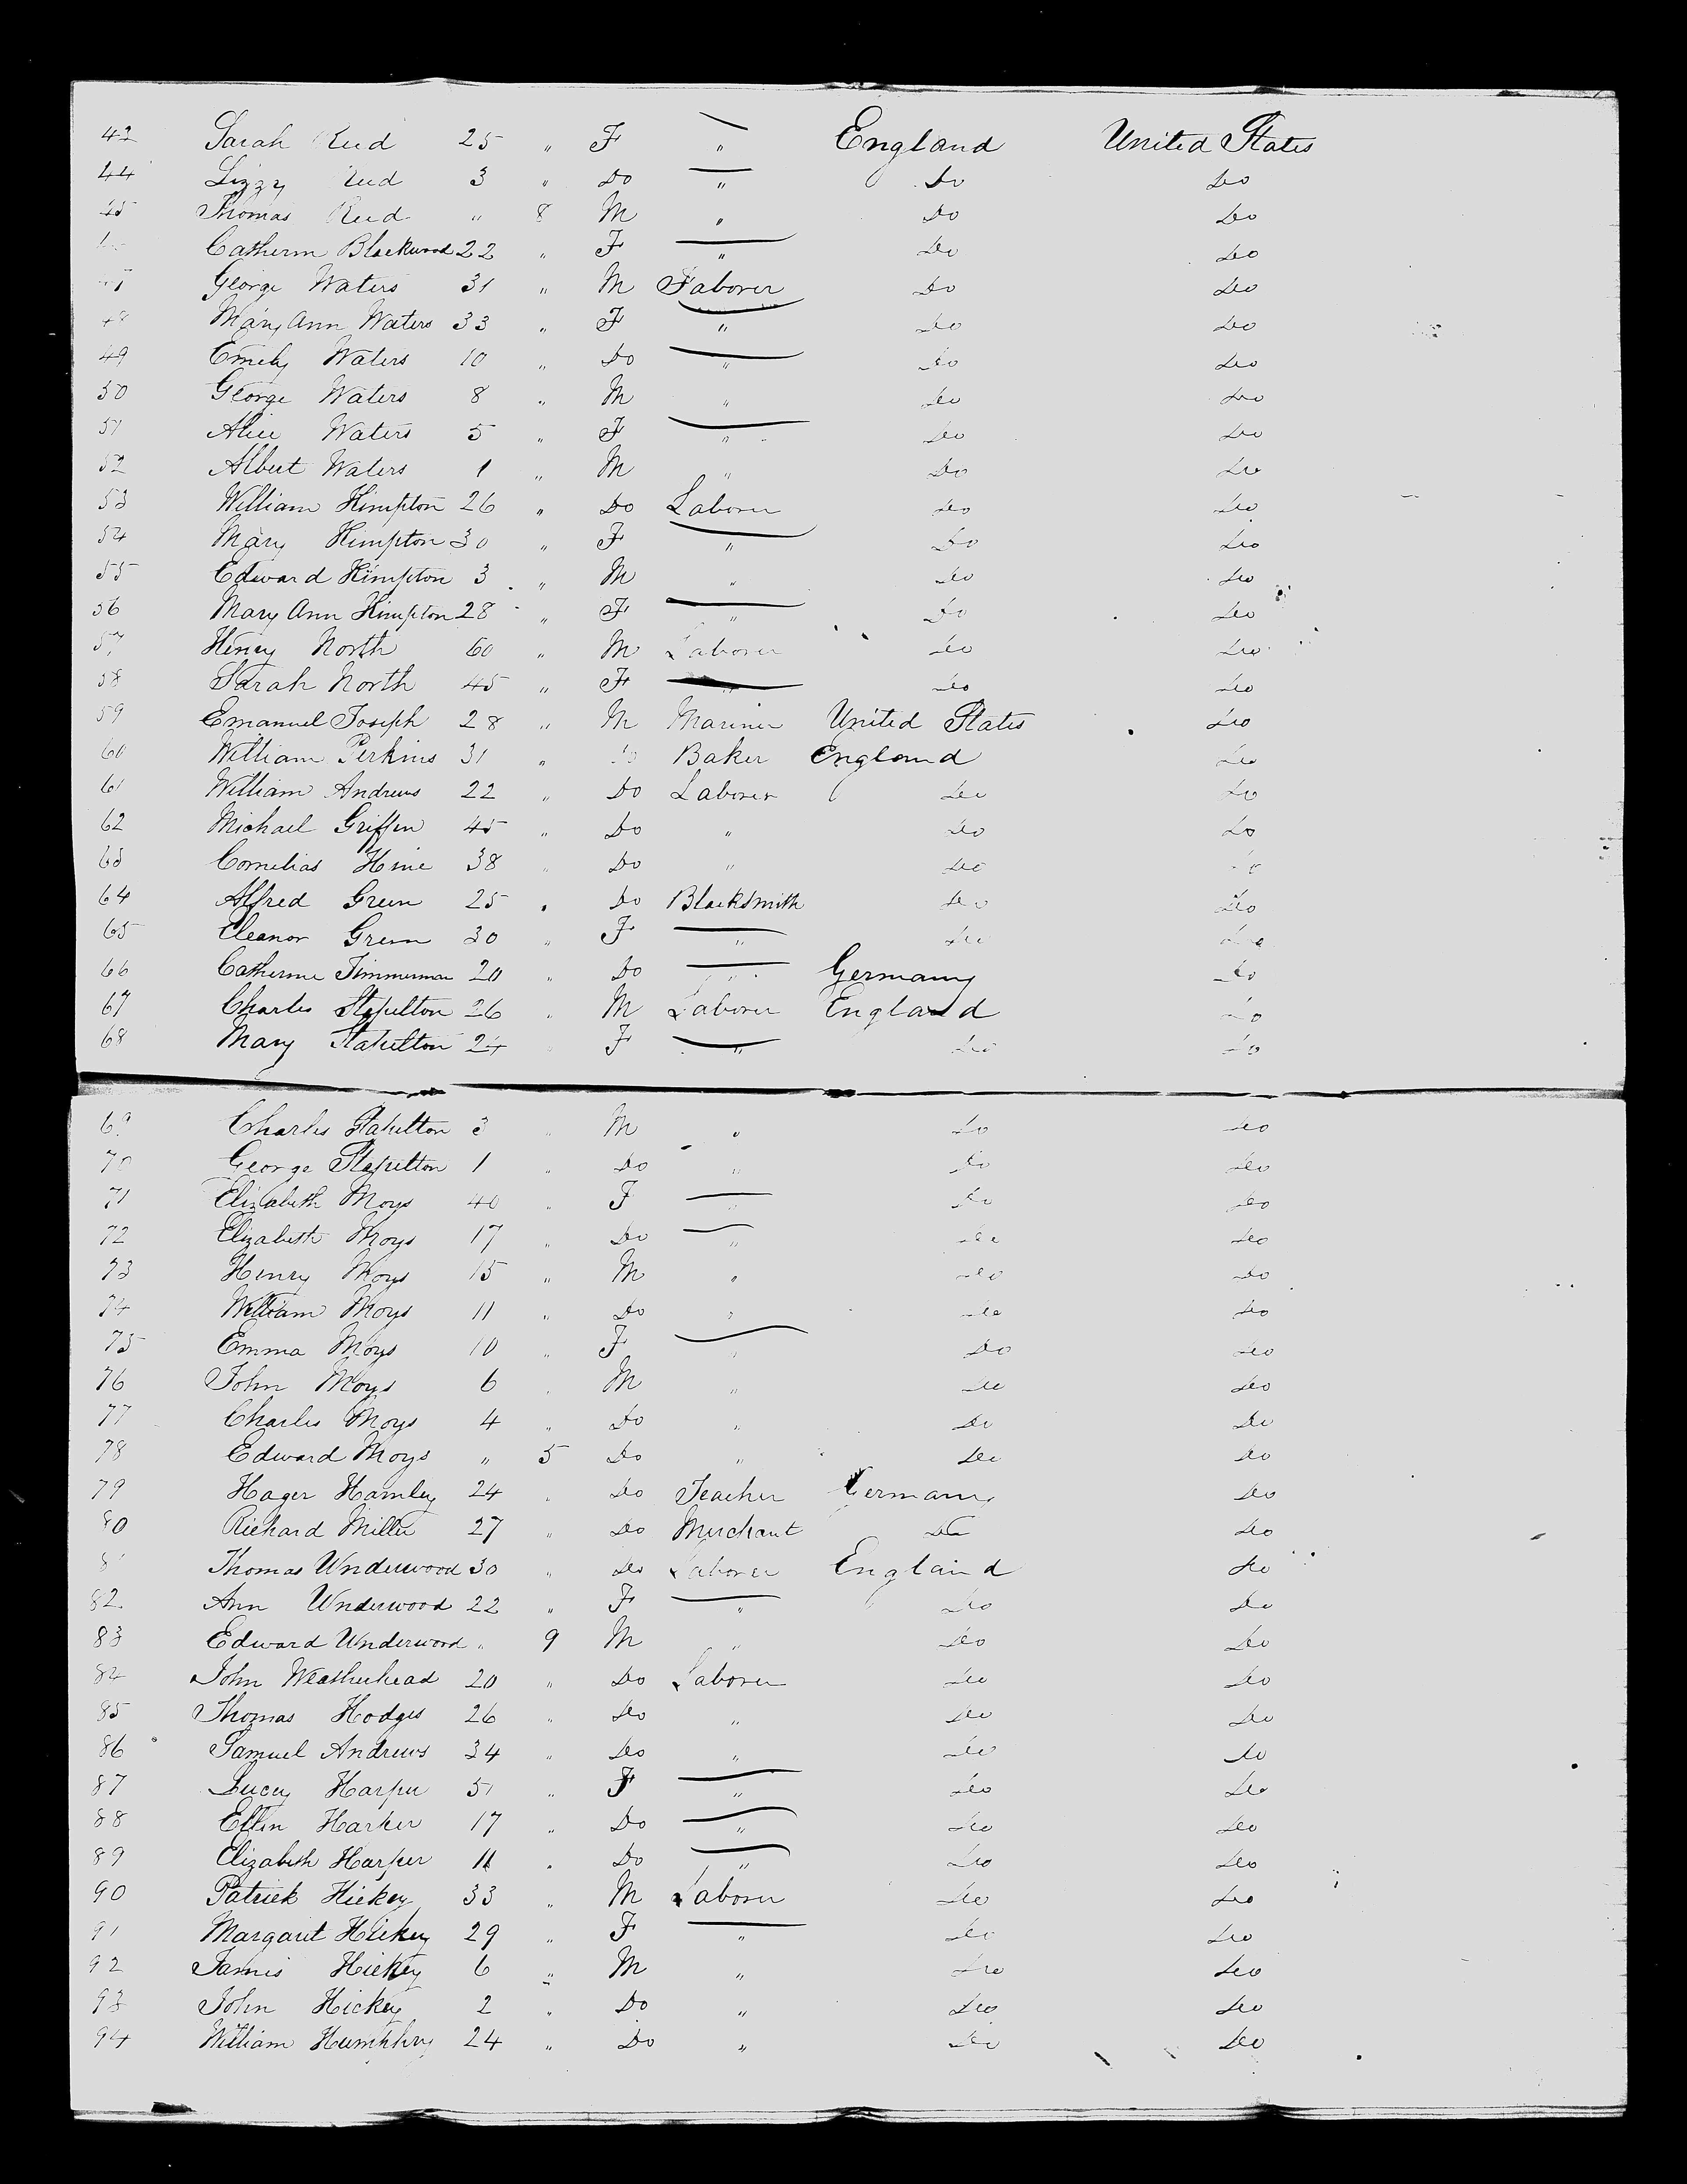 42 Sarah Reed 25 " F " England United States
44 Lizzy Reed 3 " Do " Do Do
45 Thomas Reed " 8 M " Do Do
Catherin Blackwood 22 " F " Do Do
47 George Waters 31 " M Laborer Do Do
48 Mary Ann Waters 33 " F " Do Do
49 Emily Waters 10 " Do " Do Do
50 George Waters 8 " M " Do Do
51 Alice Waters 5 " F " Do Do
52 Albert Waters 1 " M " Do Do
53 William Kimpton 26 " Do Laborer Do Do
54 Mary Kimpton 30 " F " Do Do
55 Edward Kimpton 3 " M " Do Do
56 Mary Ann Kimpton 28 " F " Do Do
57 Henry North 60 " M Laborer Do Do
58 Sarah North 45 " F " Do Do
59 Emanuel Joseph 28 " M Mariner United States Do
60 William Perkins 31 " Do Baker England Do
61 William Andrews 22 " Do Laborer Do Do
62 Michael Griffin 45 " Do " Do Do
63 Cornelias Hine 38 " Do " Do Do
64 Alfred Green 25 " Do Blacksmith Do Do
65 Eleanor Green 30 " F " Do Do
66 Catherine Timmerman 20 " Do " Germany Do
67 Charles Stapelton 26 " M Laborer England Do
68 Mary Stapelton 24 " F " Do Do
69 Charles Stapelton 3 " M " Do Do
70 George Stapelton 1 " Do " Do Do
71 Elizabeth Moys 40 " F " Do Do
72 Elizabeth Moys 17 " Do " Do Do
73 Henry Moys 15 " M " Do Do
74 William Moys 11 " Do " Do Do
75 Emma Moys 10 " F " Do Do
76 John Moys 6 " M " Do Do
77 Charles Moys 4 " Do " Do Do
78 Edward Moys " 5 Do " Do Do
79 Hager Hamley 24 " Do Teacher Germany Do
80 Richard Miller 27 " Do Merchant Do Do
81 Thomas Underwood 30 " Do Laborer England Do
82 Ann Underwood 22 " F " Do Do
83 Edward Underwood " 9 M " Do Do
84 John Weatherhead 20 " Do Laborer Do Do
85 Thomas Hodges 26 " Do " Do Do
86 Samuel Andrews 34 " Do " Do Do
87 Lucy Harper 51 " F " Do Do
88 Ellin Harper 17 " Do " Do Do
89 Elizabeth Harper 11 " Do " Do Do
90 Patrick Hickey 33 " M Laborer Do Do
91 Margaret Hickey 29 " F " Do Do
92 James Hickey 6 " M " Do Do
93 John Hickey 2 " Do " Do Do
94 William Humphry 24 " Do " Do Do